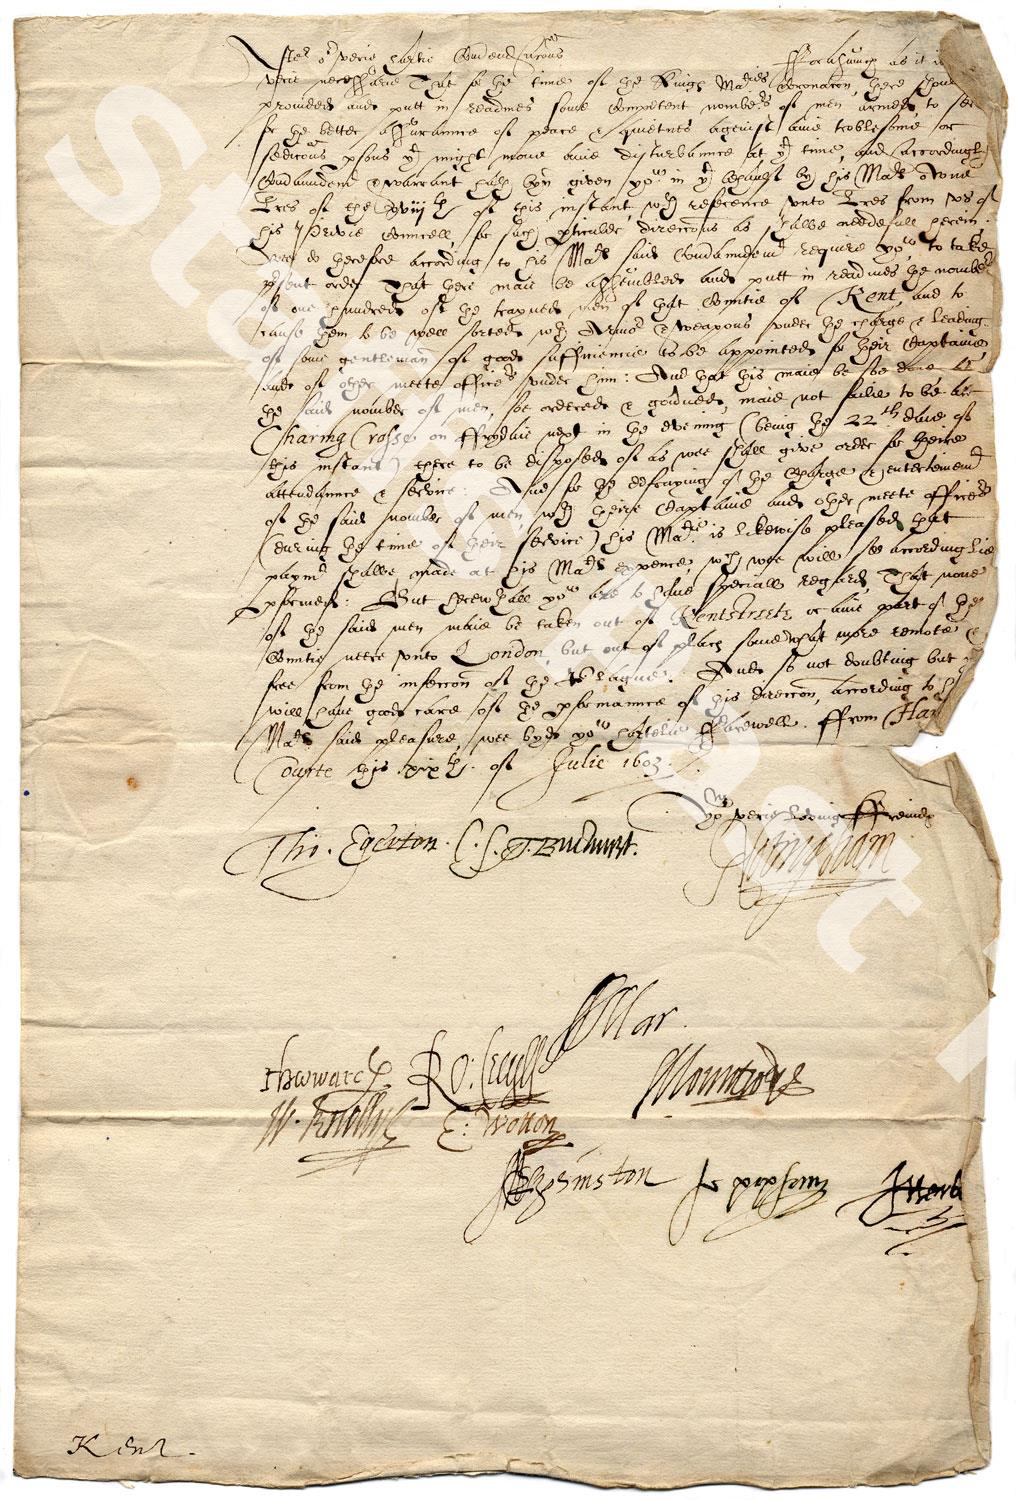 After or verie hartie Comendac̃ons fforasmuch as it is
verie necessarie That at the time of the Kings Maties Coronac̃on, there should
provided and putt in readines some Competent nombers of men armed to serve
for the better assuraunce of peace & quietnes against anie troblesome or
sedic̃ous psons yt might move anie disturbaunce at yt time, and accordinglie
Comaundemt & warrant hath byn given you in yt behalf by his Mats owne
Lres of the xviijth of this instant, wth reference unto Lres from us of
his Privie Councell, for such pticuler direcc̃ons as shalbe needefull herein.
Wee do therefore according to his Mats said Comaundemt require you to take
psent order That there maie be assembled and putt in readines the nomber
of one hundred of the trayned men of that Countie of Kent, and to
cause them to be well sorted wth Armor & weapons under the charge & leading
of some gentleman of good sufficiencie to be appointed for their Captaine,
and of other meete officers under him: And that this maie be soe done as
the said nomber of men, so ordered & governed, maie not faile to be at
Charing Crosse on ffrydaie next in the evening (being the 22th daie of
this instant) there to be disposed of as wee shall give order for theire
attendaunce & service: And for the defraying of the Charge & entertainemt
of the said nomber of men, wth theire Captaine and other meete officers
(during the time of their service) his Matie is likewise pleased that
paymt shalbe made at his Mats expence, wch wee will see accordinglie
pformed: But herewthall you are to have speciall regard, That none
of the said men maie be taken out of Kentstreete or anie part of the
Countie neere unto London, but out of places somewhat more remote &
free from the infecc̃on of the Plague. And so not doubting but you
will have good care of the pformance of this direcc̃on, according to his
Mats said pleasure, wee byd you hartelie ffarewell. ffrom Ham
Courte this xixth of Julie 1603.
Yor verie loving ffreinds
Tho. Egerton C. S. T. Buckurst. Notingham
Mar
Howard Ro: Cecyll Mountjoye
W. Knollys E: Wotton
Kynmston J popham J Herb
Kent.
Ste